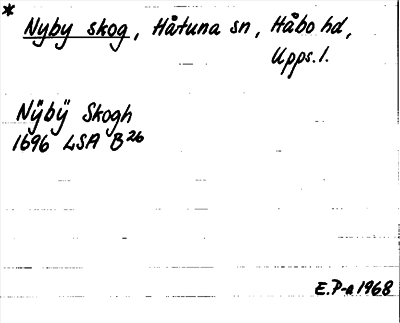 * Nyby skog, Håtuna sn, Håbo hd,
Upps. l.
Nÿbÿ Skogh
1696 LSA B26
E.P-n 1968